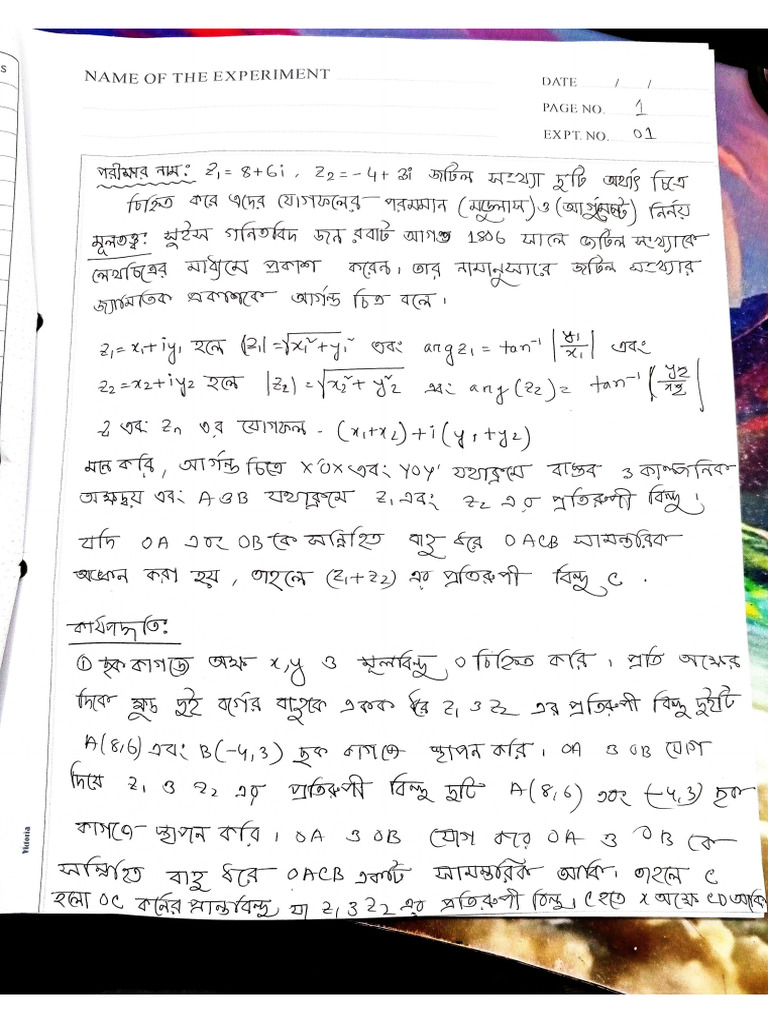 S
NAME OF THE EXPERIMENT
DATE / /
PAGE NO. 1
EXPT. NO. 01
পরীক্ষার নাম: Z₁ = 8+6i , Z₂ = -4+3i জটিল সংখ্যা দুটি অর্থাৎ চিত্রে
চিহ্নিত করে এদের যোগফলের পরমমান (মডুলাস) ও (আর্গুমেন্ট) নির্নয়
মূলতত্ত্ব: সুইস গনিতবিদ জন রবার্ট আগণ্ড 1806 সালে জটিল সংখ্যাকে
লেখচিত্রের মাধ্যমে প্রকাশ করেন। তার নামানুসারে জটিল সংখ্যার
জ্যামিতিক প্রকাশকে আর্গন্ড চিত্র বলে।
z₁ = x₁+iy₁ হলে |z₁| = √x₁²+y₁² এবং arg z₁ = tan⁻¹ |y₁/x₁| এবং
z₂ = x₂+iy₂ হলে |z₂| = √x₂²+y²₂ এবং arg (z₂) = tan⁻¹ |y₂/x₂|
এবং Zn এর যোগফল - (x₁+x₂)+i(y₁+y₂)
মনে করি, আর্গন্ড চিত্রে X'OX এবং YOY' যথাক্রমে বাস্তব ও কাল্পনিক
অক্ষদ্বয় এবং A ও B যথাক্রমে Z₁ এবং Z₂ এর প্রতিরুপী বিন্দু।
যদি OA এবং OB কে সন্নিহিত বাহু ধরে OACB সামন্তরিক
অংকন করা হয়, তাহলে (Z₁+Z₂) এর প্রতিরুপী বিন্দু C .
কার্যপদ্ধতি:
① ছক কাগজে অক্ষ x,y ও মূলবিন্দু O চিহ্নিত করি। প্রতি অক্ষের
দিকে ক্ষুদ্র দুই বর্গের বাহুকে একক ধরে Z₁ ও Z₂ এর প্রতিরুপী বিন্দু দুইটি
A(8,6) এবং B(-4,3) ছক কাগজে স্থাপন করি। OA ও OB যোগ
দিয়ে Z₁ ও Z₂ এর প্রতিরুপী বিন্দু দুটি A(8,6) এবং (-4,3) ছক
কাগজে স্থাপন করি। OA ও OB যোগ করে OA ও OB কে
সন্নিহিত বাহু ধরে OACB একটি সামন্তরিক আকি। তাহলে C
হলো OC কর্নের প্রান্তবিন্দু যা Z₁ ও Z₂ এর প্রতিরুপী বিন্দু। C হতে x অক্ষে CD আকি
Victoria